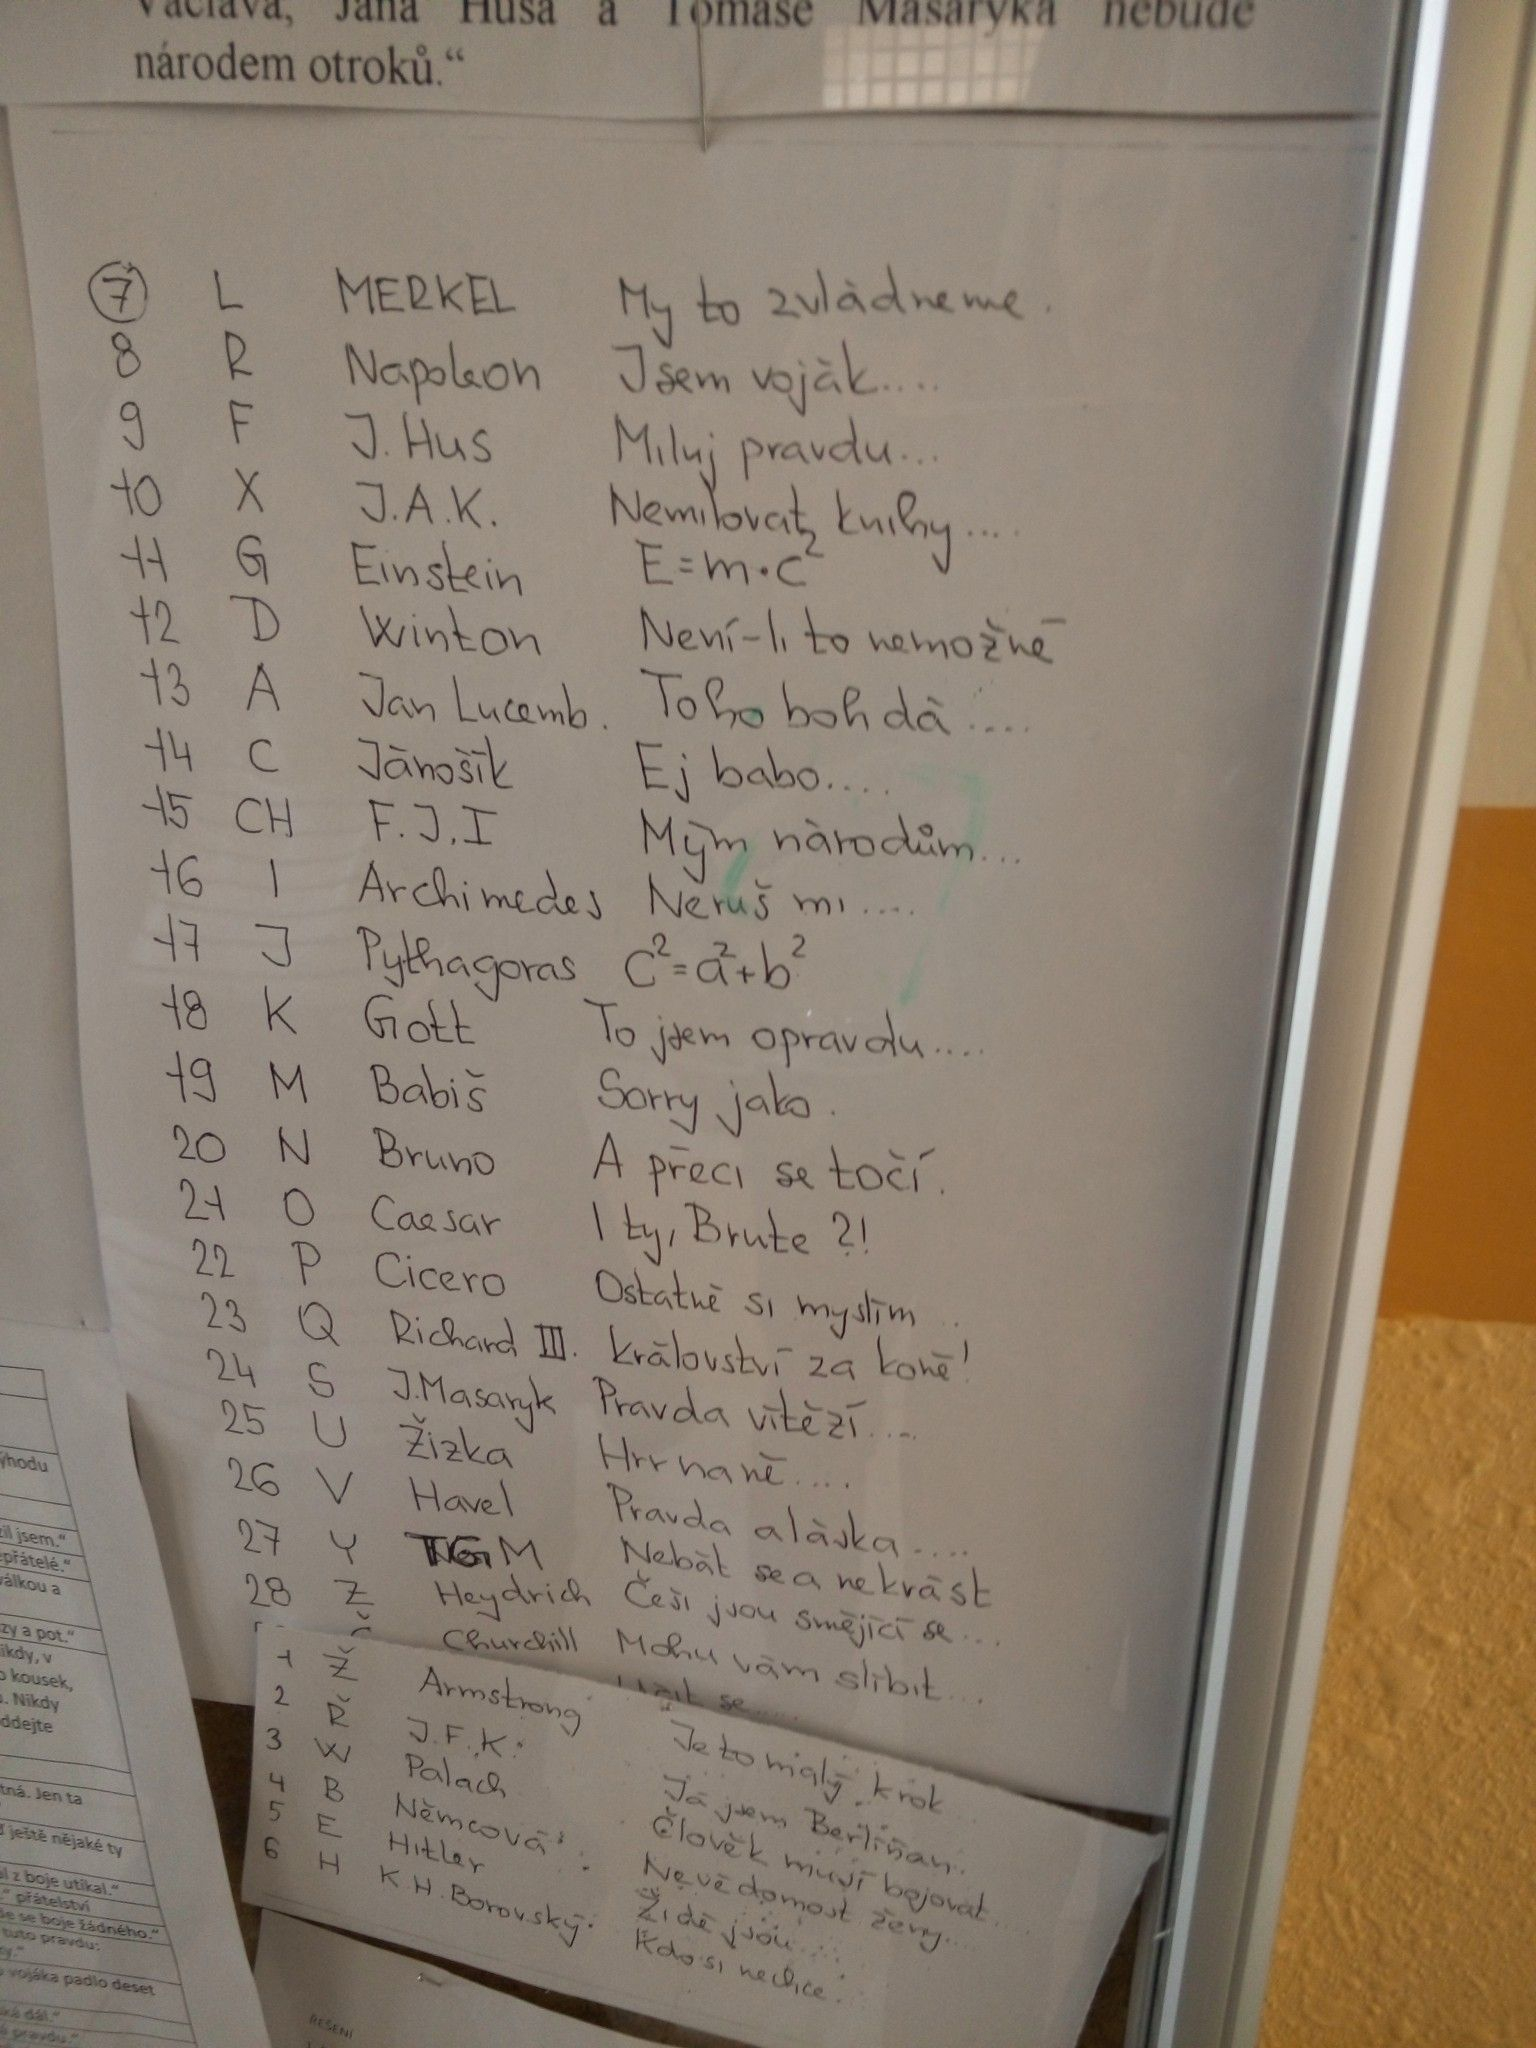 Václava, Jana Husa a Tomáše Masaryka nebude
národem otroků.“
7 L MERKEL My to zvládneme.
8 R Napoleon Jsem voják....
9 F J. Hus Miluj pravdu...
10 X J.A.K. Nemilovat knihy....
11 G Einstein E=m·c²
12 D Winton Není-li to nemožné
13 A Jan Lucemb. Toho bohdá ....
14 C Jánošík Ej babo....
15 CH F.J.I Mým národům...
16 I Archimedes Neruš mi ....
17 J Pythagoras c²=a²+b²
18 K Gott To jsem opravdu....
19 M Babiš Sorry jako.
20 N Bruno A přeci se točí.
21 O Caesar I ty, Brute ?!
22 P Cicero Ostatně si myslím ..
23 Q Richard III. Království za koně!
24 S J.Masaryk Pravda vítězí....
25 U Žižka Hrr na ně....
26 V Havel Pravda a láska....
27 Y TGM Nebát se a nekrást
28 Z Heydrich Češi jsou smějící se...
Churchill Mohu vám slíbit...
1 Ž Armstrong Je to malý krok
2 Ř J.F.K. Já jsem Berlíňan.
3 W Palach Člověk musí bojovat...
4 B Němcová Nevědomost ženy....
5 E Hitler Židé jsou....
6 H K.H.Borovský Kdo si nechce.
ŘEŠENÍ
ýhodu
zil jsem.“
přátelé.“
válkou a
zy a pot.“
ikdy, v
o kousek,
. Nikdy
ddejte
tná. Jen ta
ještě nějaké ty
l z boje utíkal.“
“ přátelství
de se boje žádného.“
tuto pravdu:
y.“
o vojáka padlo deset
ká dál.“
pravdu.“